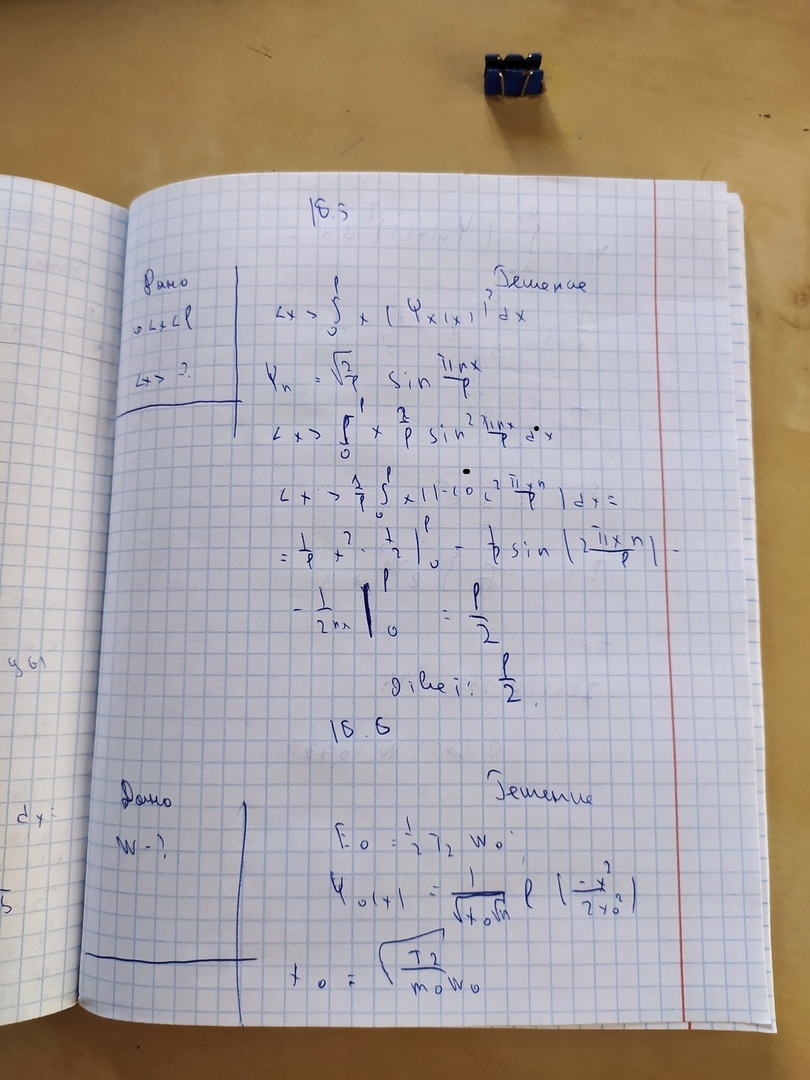 18.5
Дано
Решение
0<x<l
<x> ∫₀ˡ x |Ψx(x)|² dx
<x> - ?
Ψn = √(2/l) sin πnx/l
<x> ∫₀ˡ x 2/l sin² πnx/l dx
<x> 2/l ∫₀ˡ x(1-cos² πxn/l)dx =
= 1/l x² · 1/2 |₀ˡ - 1/l sin (2πxn/l) -
- 1/2πx |₀ˡ = l/2
Ответ: l/2.
18.6
Дано
Решение
W-?
E₀ = 1/2 ħ w₀
Ψ₀(x) = 1/√(x₀√π) e (-x²/2x₀²)
x₀ = √(ħ/m₀w₀)
цы
dx=